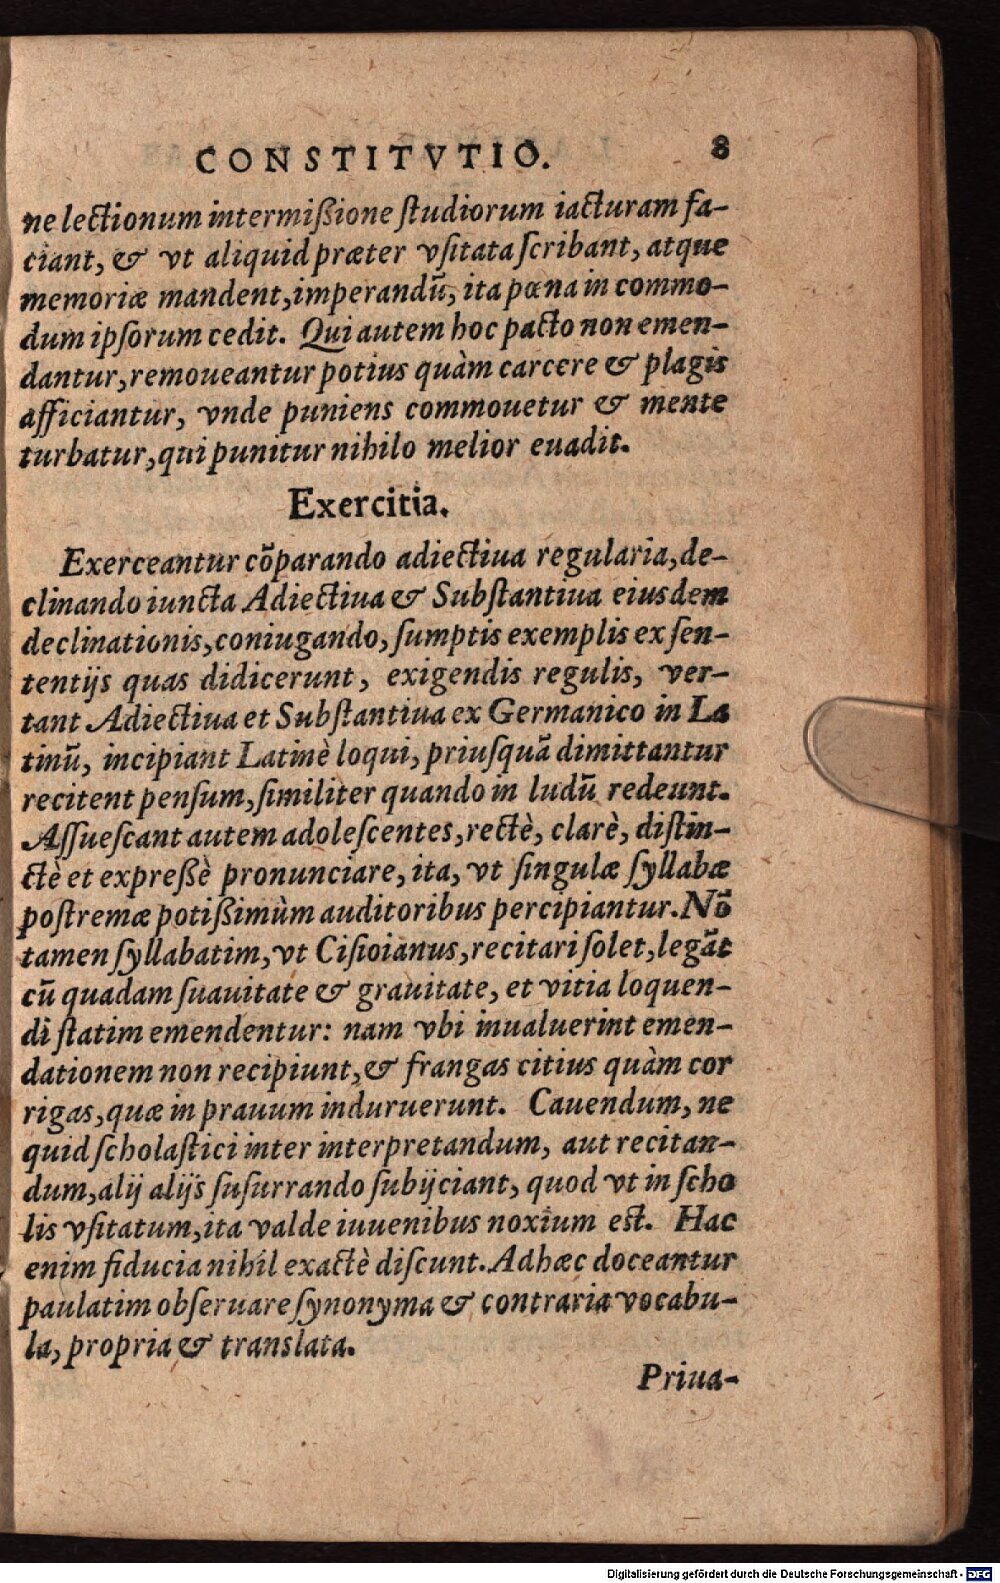 CONSTITVTIO. 8
ne lectionum intermißione ſtudiorum iacturam fa-
ciant, & vt aliquid præter vſitata ſcribant, atque
memoriæ mandent, imperandū, ita pœna in commo-
dum ipſorum cedit. Qui autem hoc pacto non emen-
dantur, remoueantur potius quàm carcere & plagis
afficiantur, vnde puniens commouetur & mente
turbatur, qui punitur nihilo melior euadit.
Exercitia.
Exerceantur cōparando adiectiua regularia, de-
clinando iuncta Adiectiua & Subſtantiua eiusdem
declinationis, coniugando, ſumptis exemplis ex ſen-
tentijs quas didicerunt, exigendis regulis, ver-
tant Adiectiua et Subſtantiua ex Germanico in La
tinū, incipiant Latinè loqui, priuſquā dimittantur
recitent penſum, ſimiliter quando in ludū redeunt.
Aſſueſcant autem adoleſcentes, rectè, clarè, diſtin-
ctè et expreßè pronunciare, ita, vt ſingulæ ſyllabæ
poſtremæ potißimùm auditoribus percipiantur. Nō
tamen ſyllabatim, vt Ciſioianus, recitari ſolet, legāt
cū quadam ſuauitate & grauitate, et vitia loquen-
di ſtatim emendentur: nam vbi inualuerint emen-
dationem non recipiunt, & frangas citius quàm cor
rigas, quæ in prauum induruerunt. Cauendum, ne
quid ſcholaſtici inter interpretandum, aut recitan-
dum, alij alijs ſuſurrando ſubijciant, quod vt in ſcho
lis vſitatum, ita valde iuuenibus noxium eſt. Hac
enim fiducia nihil exactè diſcunt. Adhæc doceantur
paulatim obſeruare ſynonyma & contraria vocabu-
la, propria & translata.
Priua-
Digitalisierung gefördert durch die Deutsche Forschungsgemeinschaft - DFG